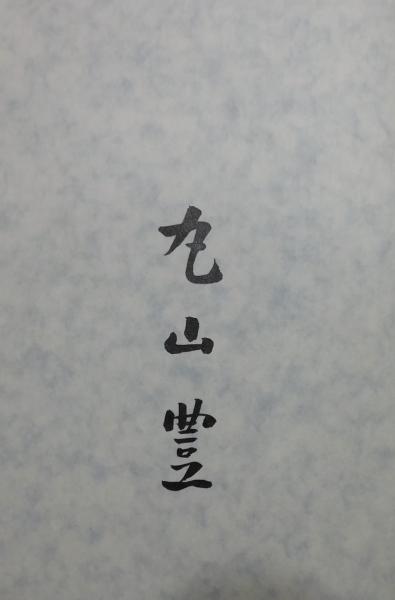 丸山豊